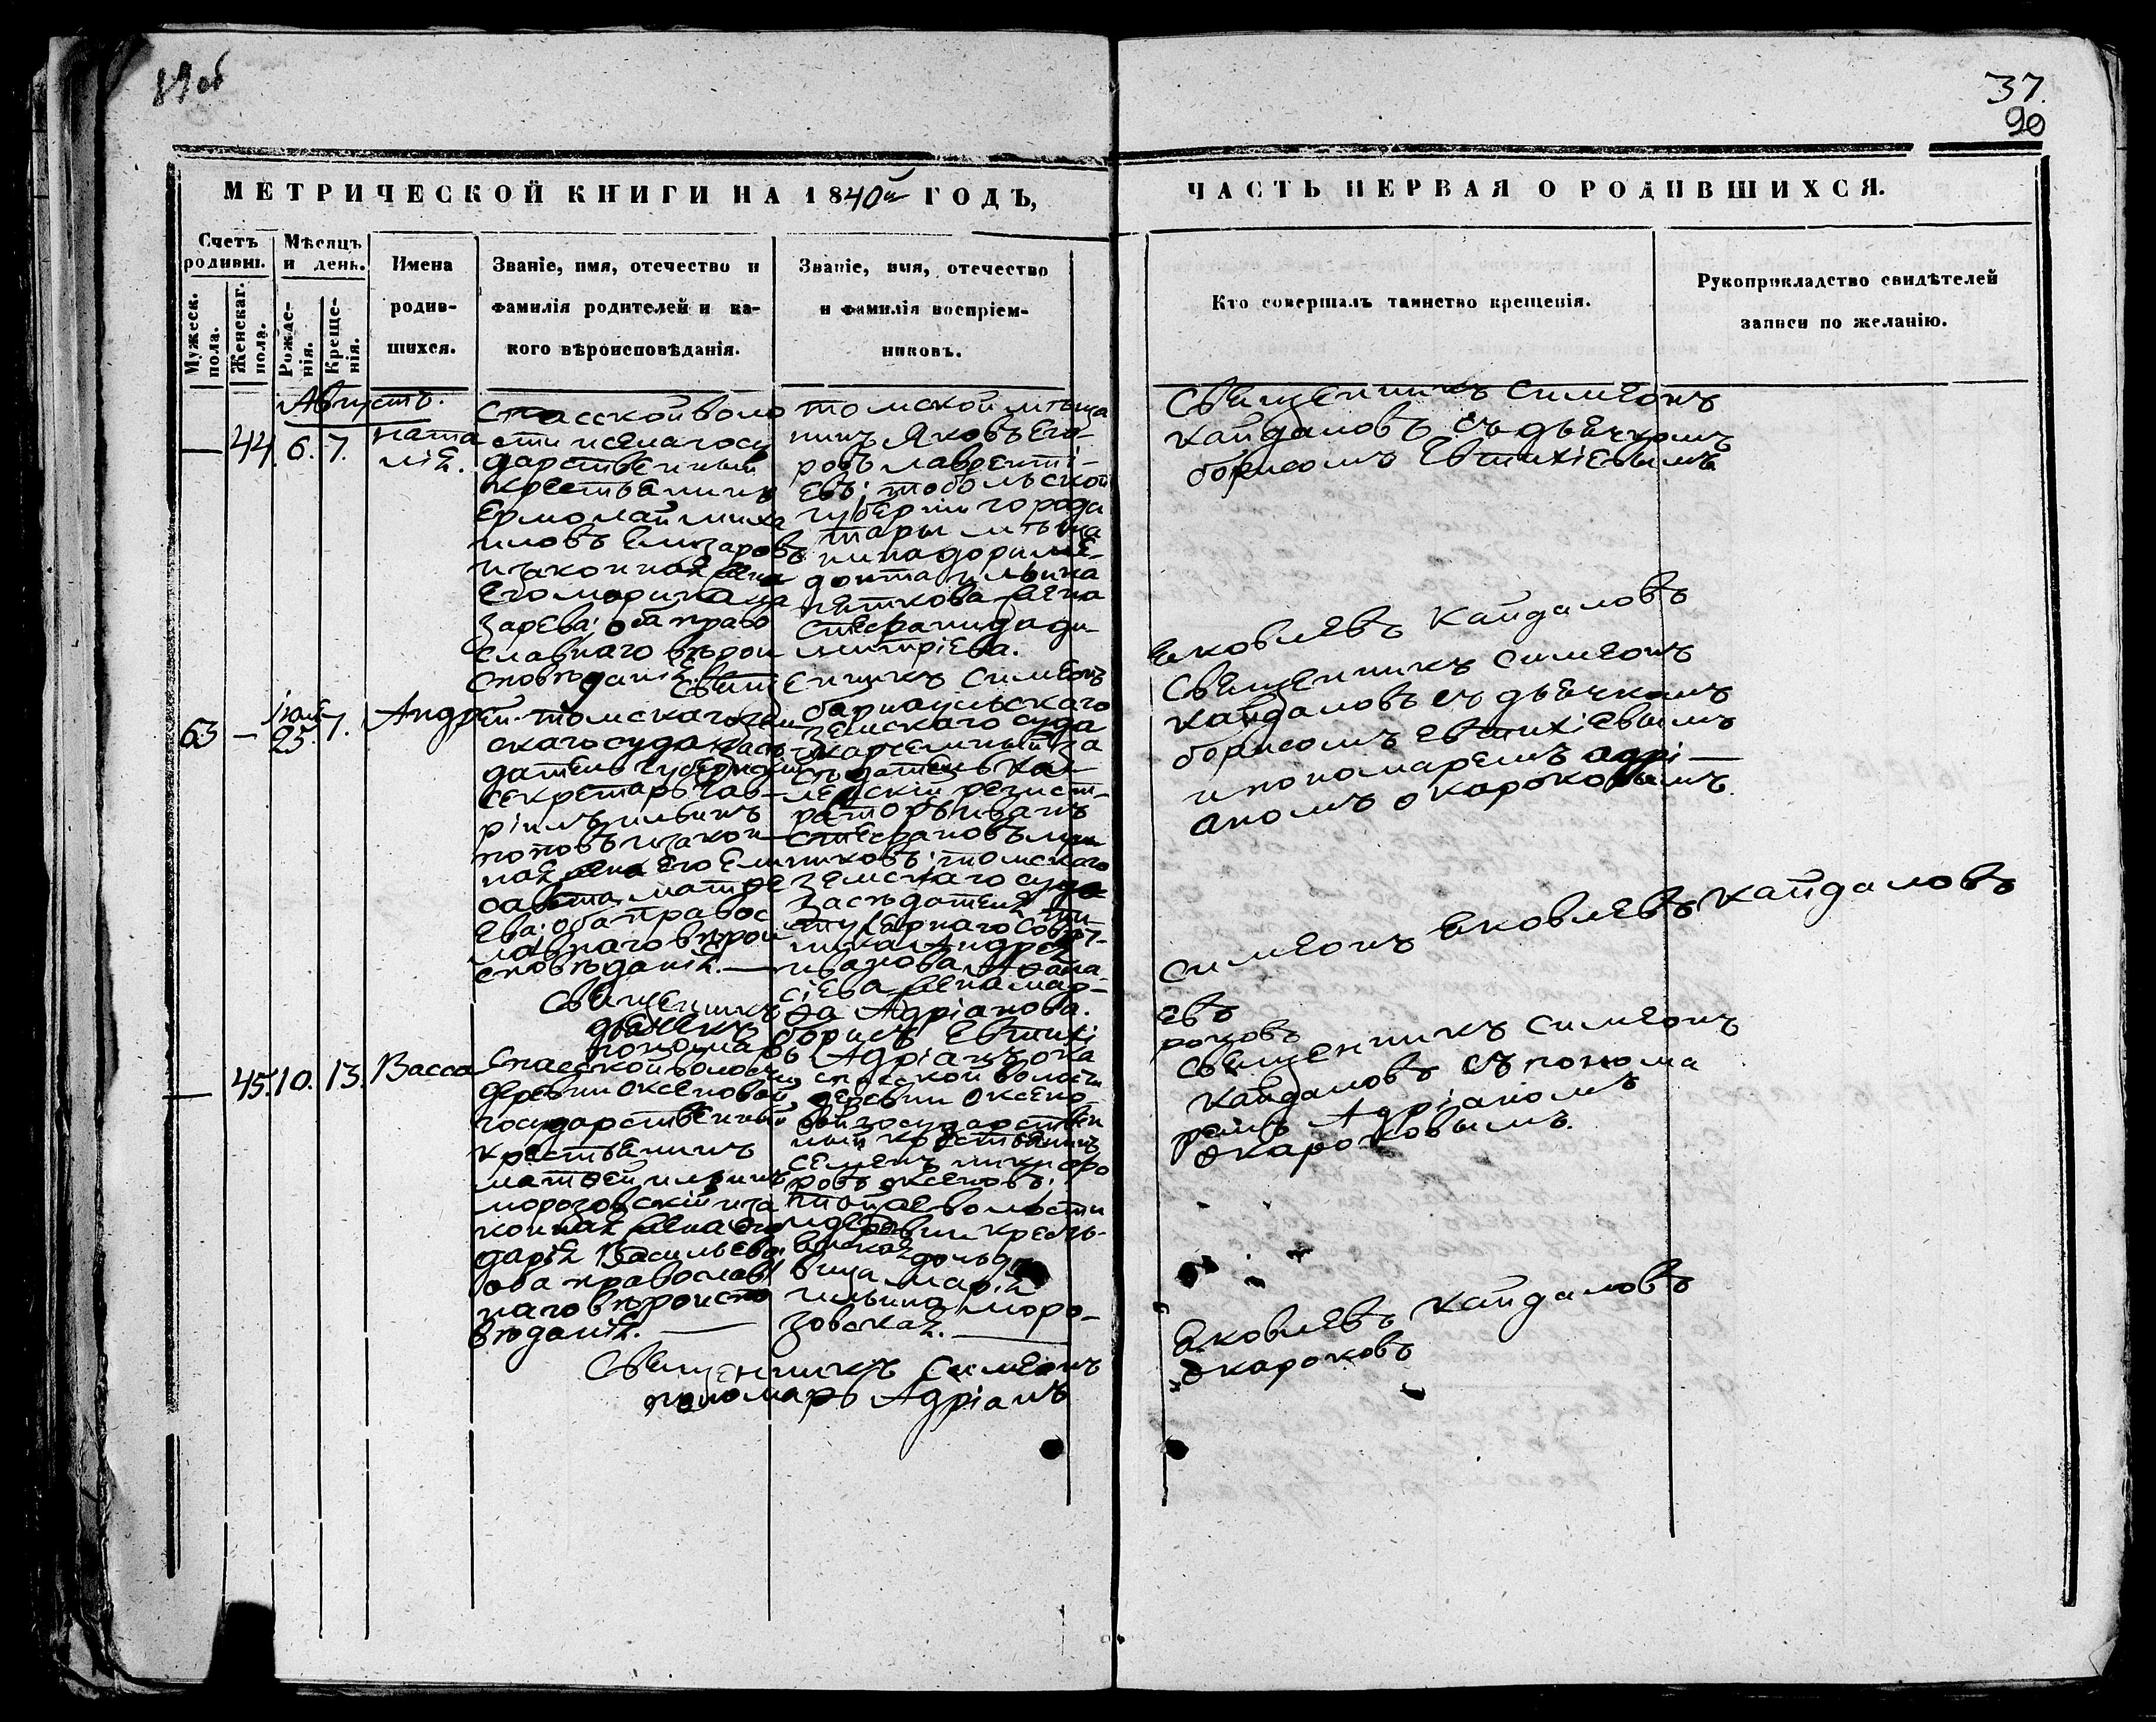 89 об
37.
90
МЕТРИЧЕСКОЙ КНИГИ НА 1840й ГОДЪ,
ЧАСТЬ ПЕРВАЯ О РОДИВШИХСЯ.
Счетъ родивш.
Мужеск. пола.
Женскаг. пола.
Мѣсяцъ и день.
Рожде-нія.
Креще-нія.
Имена
родив-
шихся.
Званіе, имя, отечество и
фамилія родителей и ка-
кого вѣроисповѣданія.
Званіе, имя, отечество
и фамилія воспріем-
никовъ.
Кто совершалъ таинство крещенія.
Рукоприкладство свидѣтелей
записи по желанію.
Августъ.
— 44. 6. 7.
ната
лія.
Спасской воло
сти и села госу
дарственный
крестьянинъ
Ермолай миха
иловъ Елизаровъ
и законная жена
его марина
зарева; оба право
славнаго вѣрои
сповѣданія.
томской мѣща
нинъ Яковъ Его-
ровъ лаврентi-
евъ; тобольской
губерніи города
тары мѣща
нина дориме-
донта ильина
пяткова жена
стефанида ди
митріева.
Священникъ симеонъ
кайдаловъ съ дьячкомъ
борисомъ Евтихіевымъ
Священникъ Симеонъ
яковлевъ кайдаловъ
63 — Іюля 25. 7. Андрей.
томскаго зем
скаго суда засѣ
датель губернскій
секретарь гав-
ріилъ ильинъ
поповъ и закон
ная жена его Ели
савета матѳе
ева; оба правос
лавнаго вѣрои
сповѣданія. —
барнаульскаго
земскаго суда
за
сѣдатель кол
лежскій регист-
раторъ иванъ
стефановъ
никовъ; томскаго
земскаго суда
засѣдателя ти
тулярнаго совѣт-
ника Андрея
иванова Аѳана-
сіева жена мар-
ѳа Адріанова.
Священникъ симеонъ
кайдаловъ съ дьячкомъ
борисомъ Евтихіевымъ
и пономаремъ адрі—
аномъ окароковымъ.
Священникъ
симеонъ яковлевъ кайдаловъ
дьячекъ борисъ Евтихі
евъ
пономарь Адріанъ ока
роковъ
— 45. 10. 13. Васса
Спасской волости
деревни оксеновой
государственный
крестьянинъ
матѳей ильинъ
морозовскій и за
конная жена его
дарія Васильева;
оба православ
наго вѣроиспо
вѣданія. —
спасской волости
деревни оксено
вой государствен
ный крестьянинъ
семенъ никифо
ровъ оксеновъ;
той же волости
и деревни кресть-
янская дочь дѣ
вица марія
ильина моро-
зовская. —
священникъ симеонъ
кайдаловъ съ понома
ремъ Адріаномъ
окароковымъ.
Священникъ Симеонъ
яковлевъ кайдаловъ
пономарь Адріанъ
окароковъ